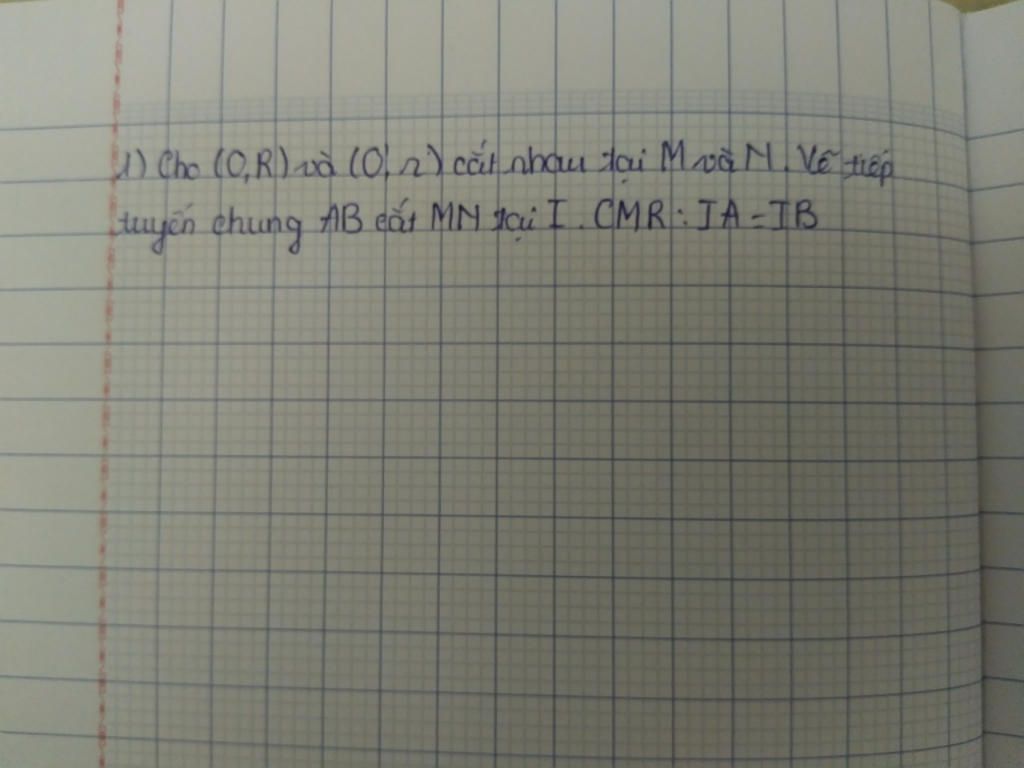 1) Cho (O,R) và (O',r) cắt nhau tại M và N. Vẽ tiếp
tuyến chung AB cắt MN tại I. CMR: IA=IB